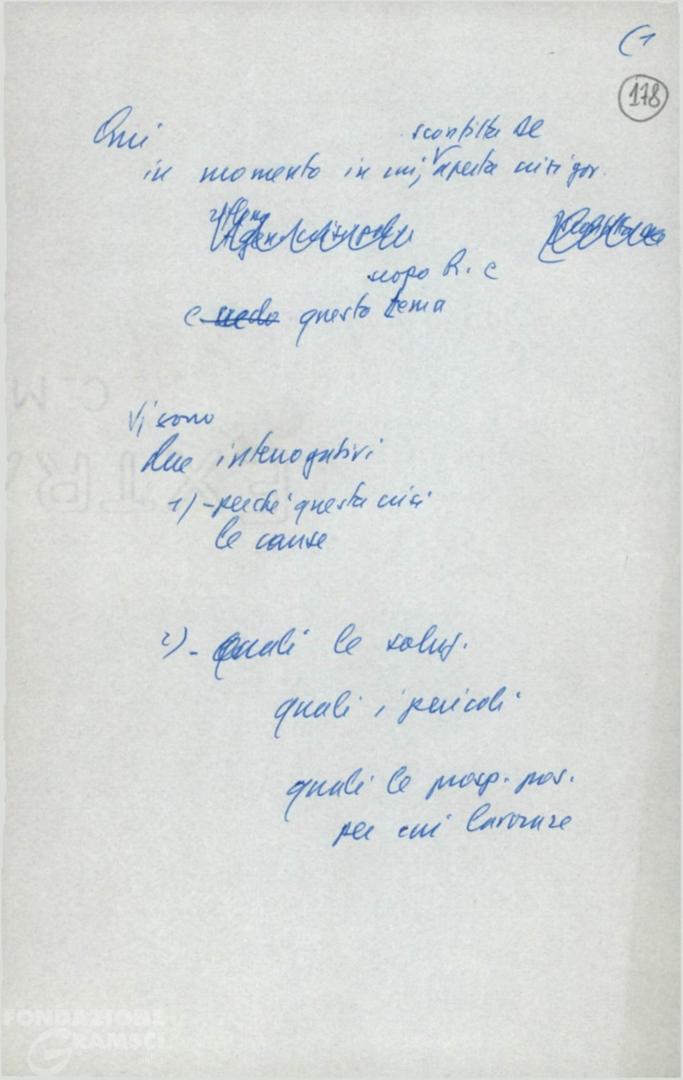 (1
178
Qui
sconfitta DC
in momento in cui, aperta crisi gov.
scopo R. e
e questo tema
Vi sono
due interrogativi
1) - perché questa crisi
le cause
2) - quali le soluz.
quali i pericoli
quali le prosp. pos.
per cui lavorare
FONDAZIONE
GRAMSCI